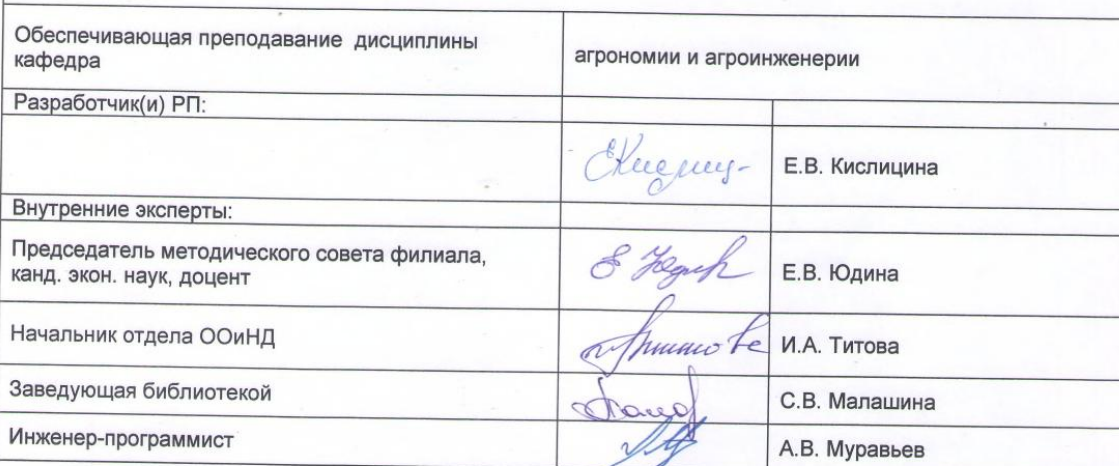 Обеспечивающая преподавание дисциплины
кафедра
агрономии и агроинженерии
Разработчик(и) РП:
Е.В. Кислицина
Внутренние эксперты:
Председатель методического совета филиала,
канд. экон. наук, доцент
Е.В. Юдина
Начальник отдела ООиНД
И.А. Титова
Заведующая библиотекой
С.В. Малашина
Инженер-программист
А.В. Муравьев